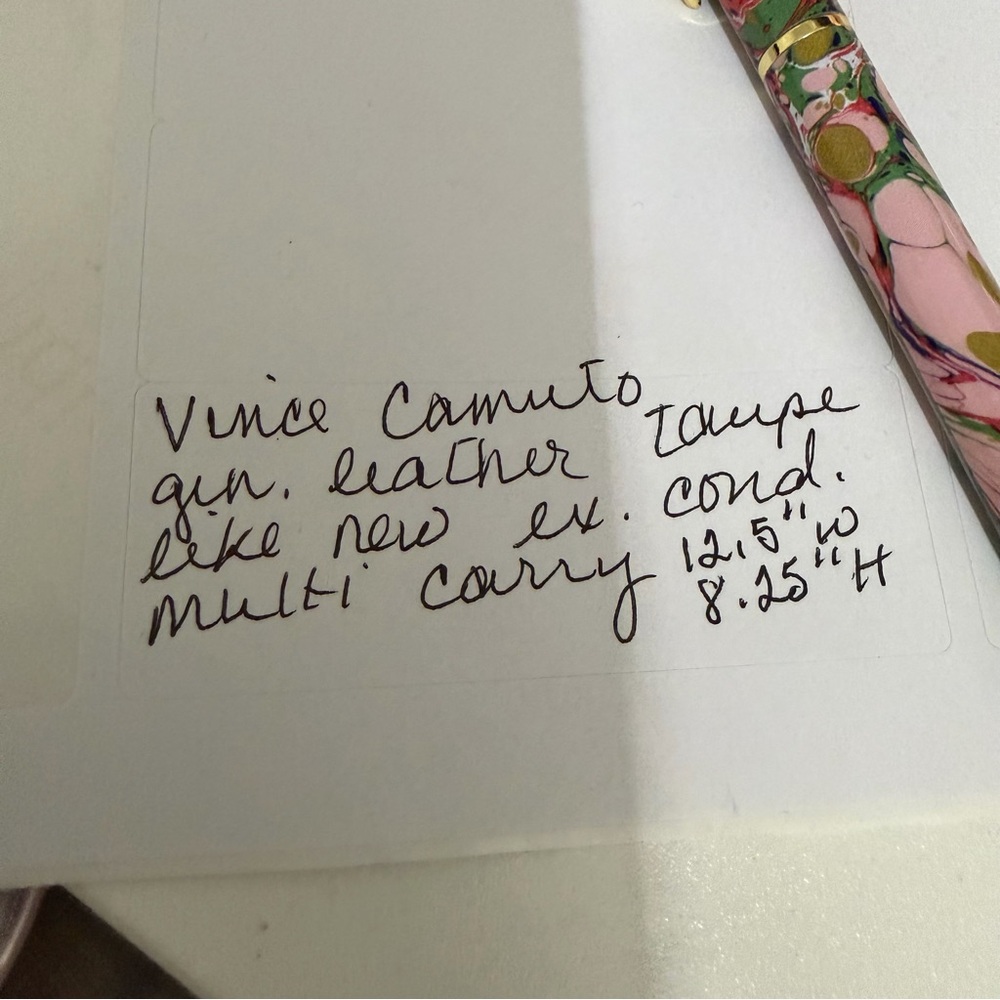 Vince Camuto
gen. leather taupe
like new ex. cond.
multi carry 12.5" W
8.25" H